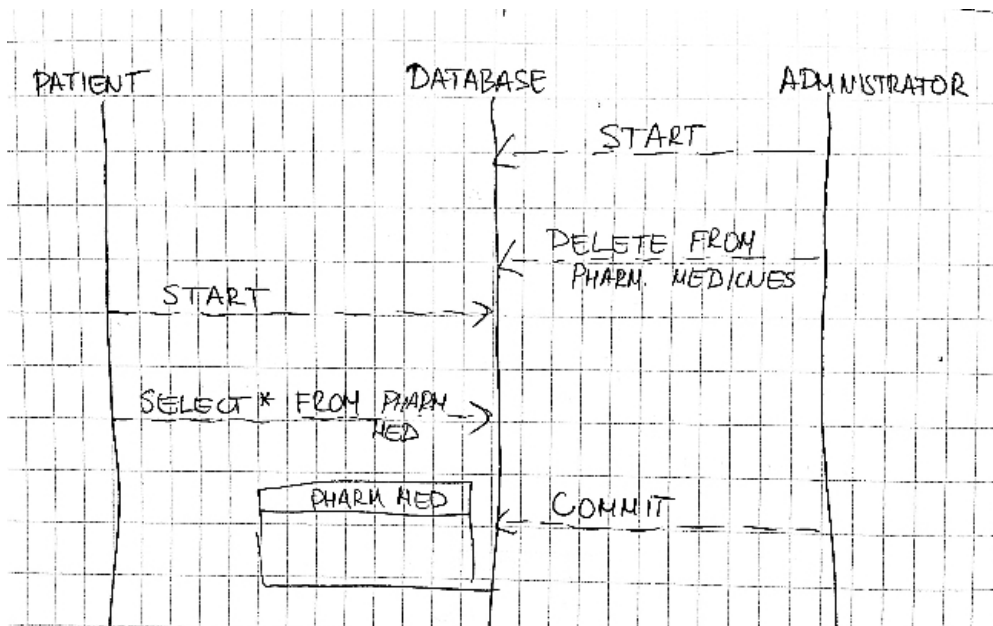 PATIENT DATABASE ADMNISTRATOR
START
DELETE FROM
PHARM. MEDICNES
START
SELECT * FROM PHARM
MED
PHARM MED
COMMIT